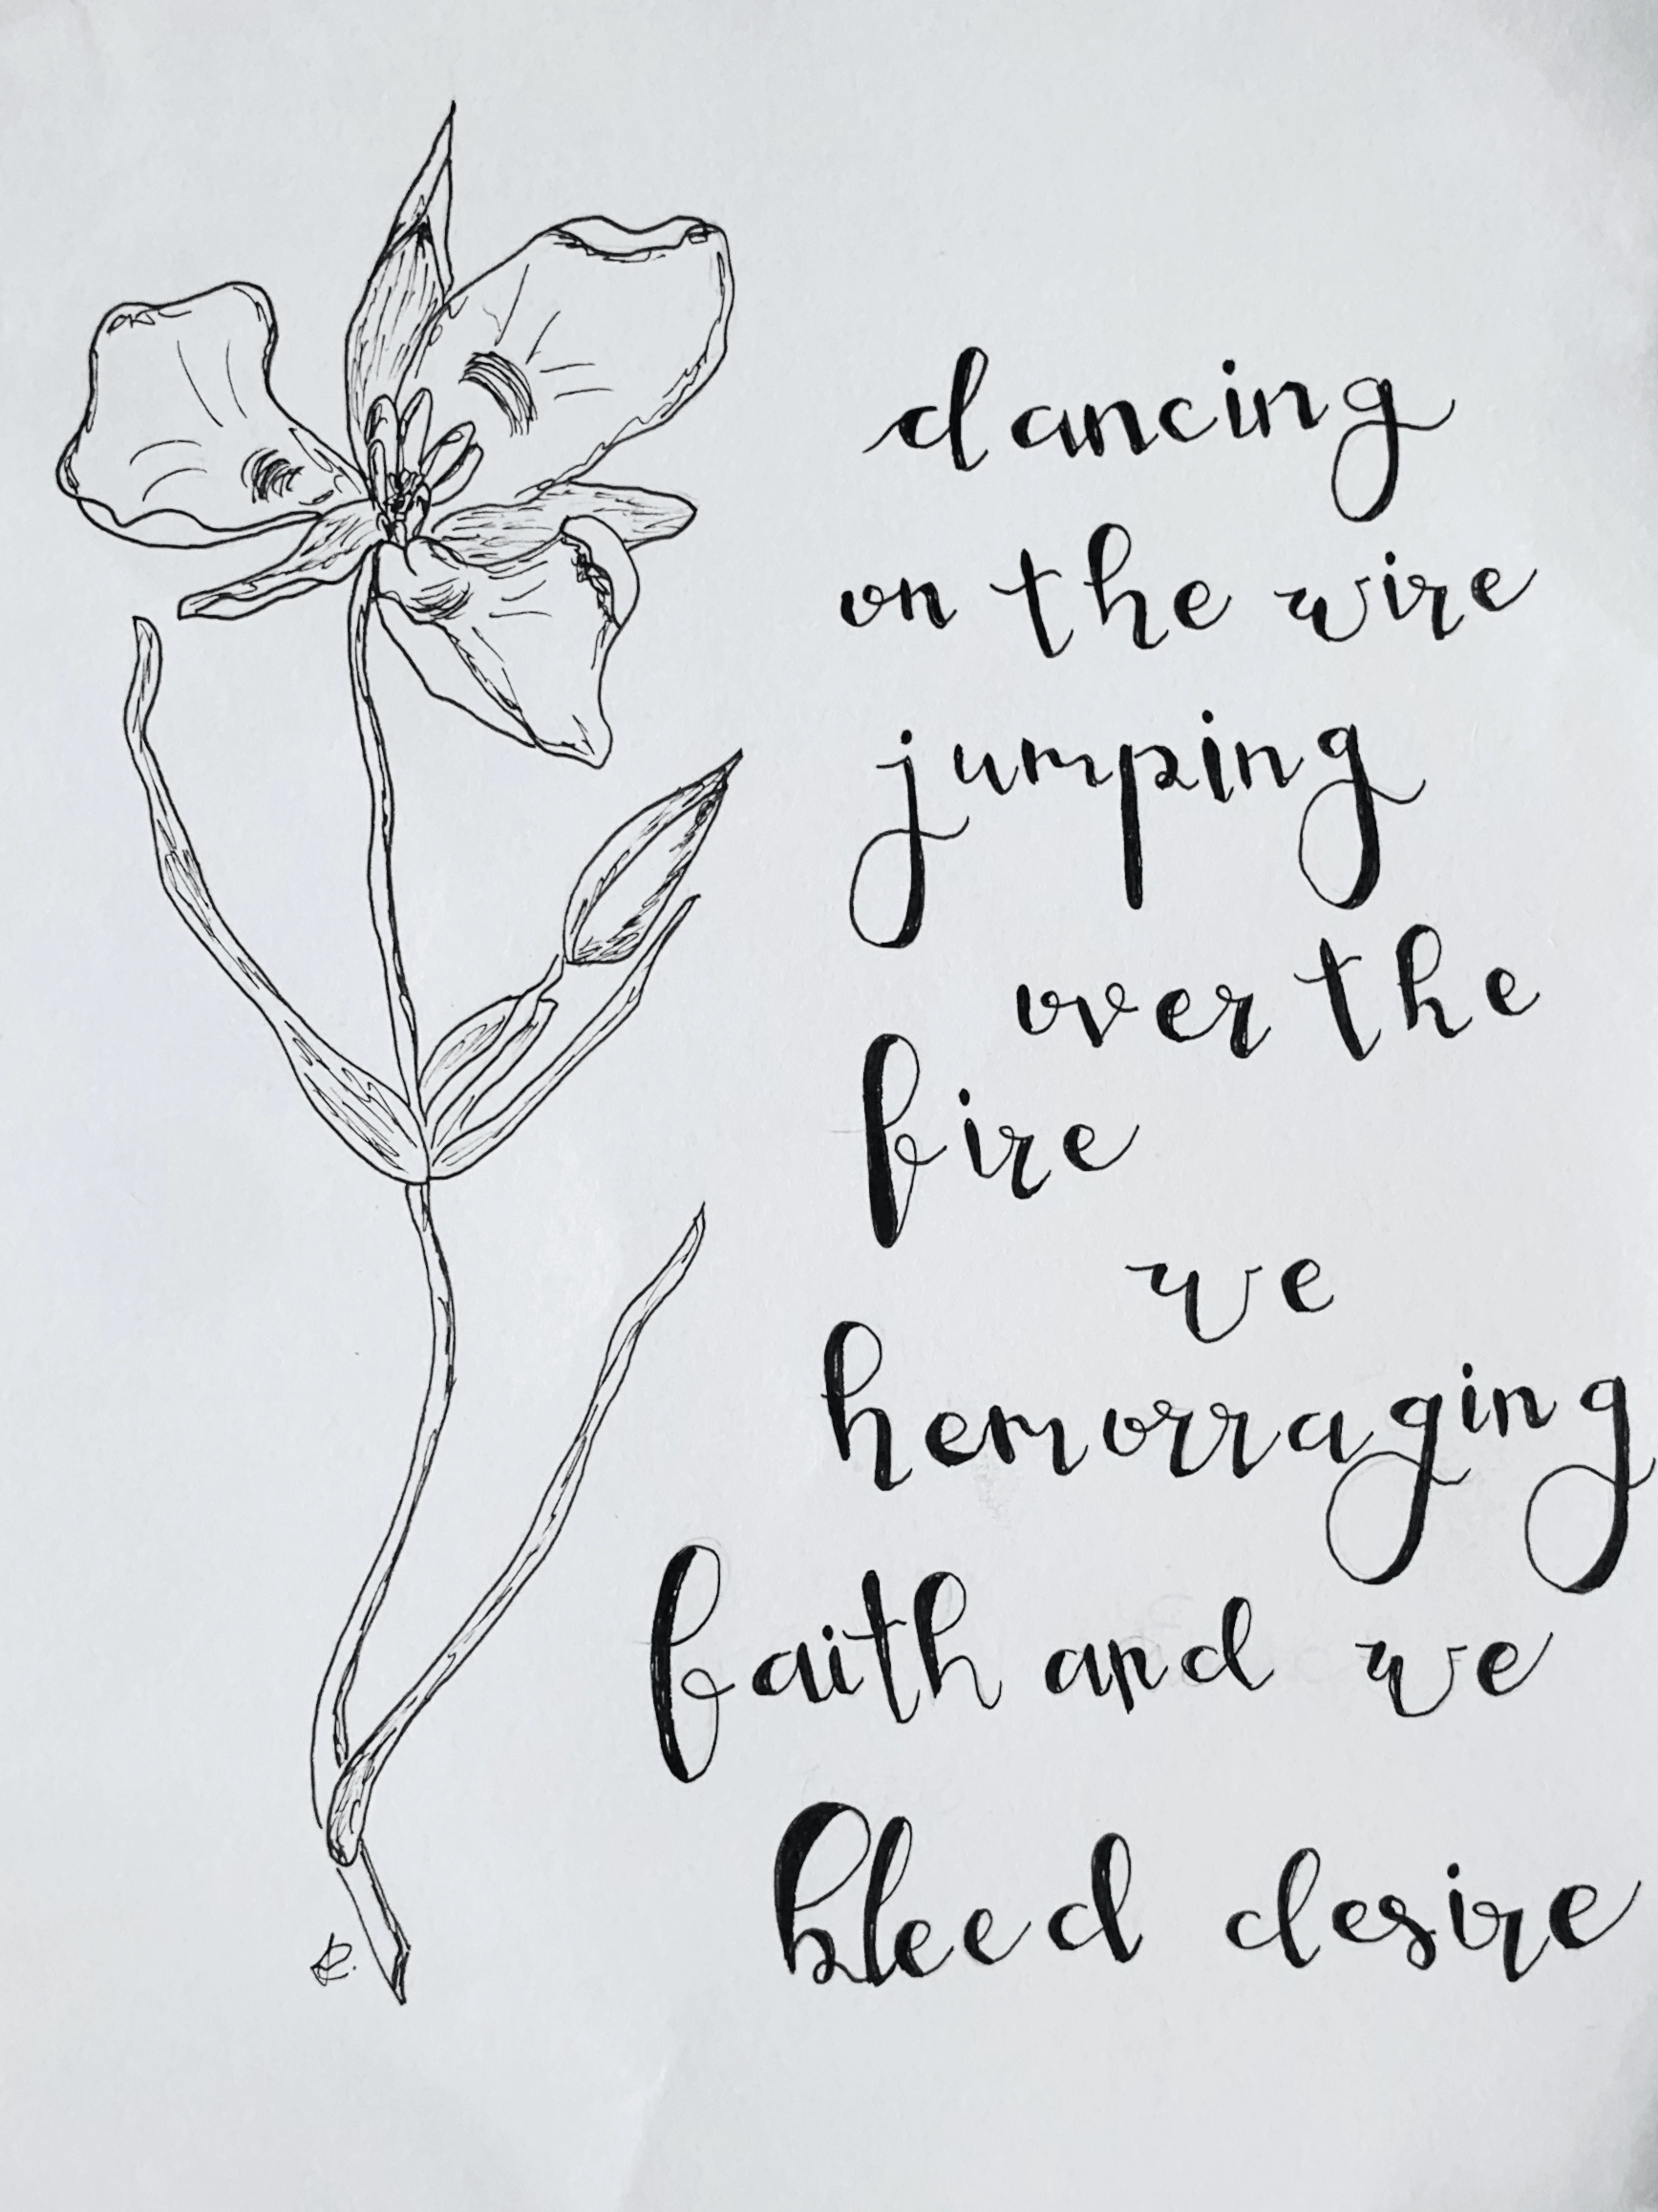 dancing
on the wire
jumping
over the
fire
we
hemorraging
faith and we
bleed desire